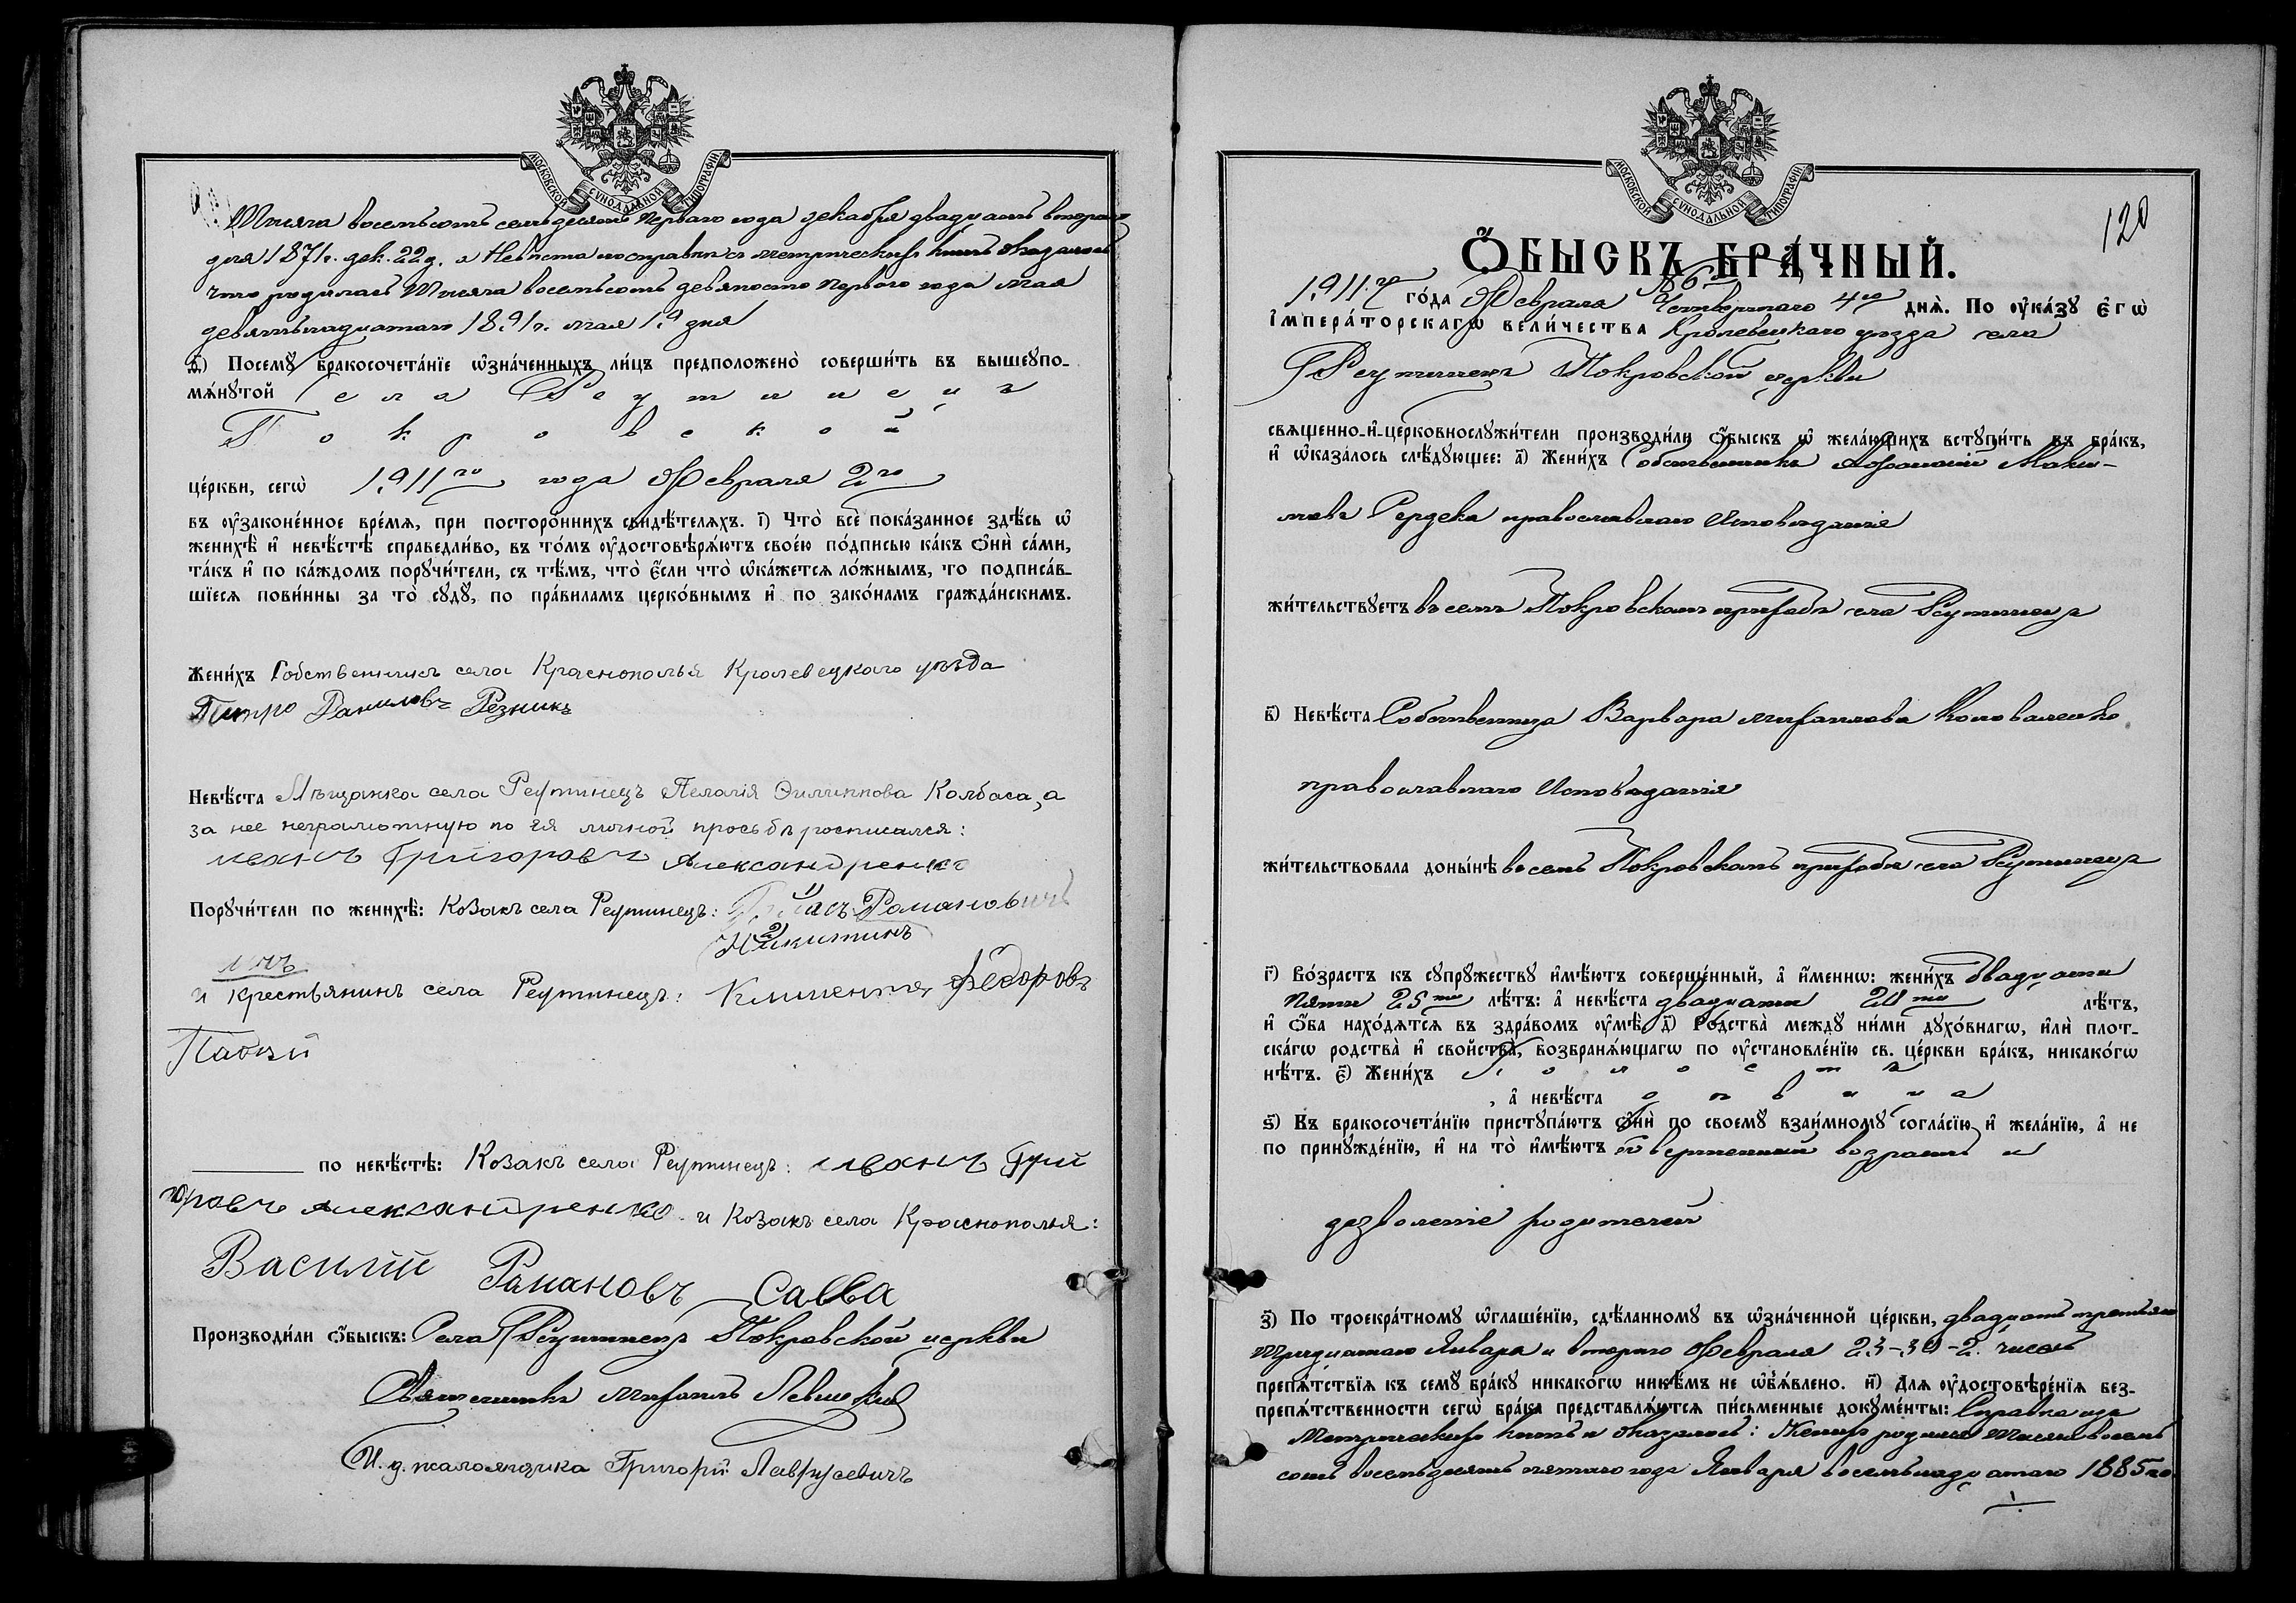 МОСКОВСКОЙ СУНОДАЛЬНОЙ ТИПОГРАФІИ
Тысяча восемьсотъ семьдесятъ перваго года декабря двадцать второго
дня 1871 г. дек. 22 д. а Невѣста по справкѣ съ метрическихъ книгъ оказалось
что родилась Тысяча восемьсотъ девяносто перваго года мая
девятнадцатаго 1891 г. мая 19 дня
Посемꙋ̀ бракосочета́нїе ѡ҆зна́ченныхъ ли́цъ предположено̀ соверши́ть въ вышеꙋпо-
мѧ́нꙋтой Села Реутинецъ
Покровской
це́ркви, сегѡ̀ 1911го года Февраля 2го
въ ᲂу҆законе́нное вре́мѧ, при посторо́ннихъ свидѣ́телѧхъ. і҃) Что̀ всѐ пока́занное здѣ́сь ѡ҆
женихѣ̀ и҆ невѣ́стѣ справедли́во, въ то́мъ ᲂу҆достовѣрѧ́ютъ свое́ю по́дписью ка́къ ѻ҆нѝ са́ми,
та́къ и҆ по ка́ждомъ порꙋчи́тели, съ тѣ́мъ, что̀ є҆́сли что̀ ѡ҆ка́жетсѧ ло́жнымъ, то подписа́в-
шїесѧ пови́нны за то̀ сꙋдꙋ̀, по пра́виламъ церко́внымъ и҆ по зако́намъ гражда́нскимъ.
Жени́хъ Собственникъ села Краснополья Кролевецкаго уѣзда
Питро Даниловъ Резникъ
Невѣ́ста Мѣщанка села Реутинецъ Пелагія Филиппова Колбаса, а
за нее неграмотную по ея личной просьбѣ росписался:
иванъ Григоровъ Александренко
Порꙋчи́тели по женихѣ̀: Козакъ села Реутинецъ: Романовичъ
Никитинъ
и крестьянинъ села Реутинецъ: Климентій Федоровъ
по невѣ́стѣ: Козакъ села Реутинецъ: иванъ Гри
горовъ александренко и Козакъ села Краснополья:
Василий Рамановъ Савва
Производи́ли ѻ҆́быскъ: Села Реутинецъ Покровской церкви
Священникъ Михаилъ Левицкій
И. д. псаломщика Григорій Лаврусевичъ
МОСКОВСКОЙ СУНОДАЛЬНОЙ ТИПОГРАФІИ
120
Ѻ҆́БЫСКЪ БРА́ЧНЫЙ.
№ 6
1911го го́да Февраля Четвертаго 4го днѧ̀. По ᲂу҆ка́зꙋ є҆гѡ̀
і҆мпера́торскагѡ вели́чества Кролевецкаго уѣзда села
Реутинецъ Покровской церкви
свѧщенно-и҆-церковнослꙋжи́тели производи́ли ѻ҆́быскъ ѡ҆ жела́ющихъ встꙋпи́ть въ бра́къ,
и҆ ѡ҆каза́лось слѣ́дꙋющее: а҃) Жени́хъ Собственникъ Афанасій Макси-
мовъ Сердека православнаго Исповѣданія
жи́тельствꙋетъ въ семъ Покровскомъ приходѣ села Реутинецъ
в҃) Невѣ́ста Собственница Варвара Михаилова Коноваленко
православнаго Исповѣданія
жи́тельствовала доны́нѣ въ семъ Покровскомъ приходѣ села Реутинецъ
г҃) Во́зрастъ къ сꙋпрꙋ́жествꙋ и҆мѣ́ютъ соверше́нный, а҆ и҆́меннѡ: жени́хъ двадцати
пяти 25ти лѣ́тъ: а҆ невѣ́ста двадцати 20ти лѣ́тъ,
и҆ ѻ҆́ба нахо́дѧтсѧ въ здра́вомъ ᲂу҆мѣ̀. д҃) Родства̀ междꙋ̀ ни́ми дꙋхо́внагѡ, и҆лѝ плот-
ска́гѡ родства̀ и҆ свойства̀, возбранѧ́ющагѡ по ᲂу҆становле́нїю св. це́ркви бра́къ, никако́гѡ
нѣ́тъ. є҃) Жени́хъ Холостъ
, а҆ невѣ́ста дѣвица
ѕ҃) Въ бракосочета́нїю пристꙋпа́ютъ ѻ҆нѝ по своемꙋ̀ взаи́мномꙋ согла́сїю и҆ жела́нїю, а҆ не
по принꙋжде́нїю, и҆ на то̀ и҆мѣ́ютъ совершенный возрастъ и
дозволеніе родителей
з҃) По троекра́тномꙋ ѡ҆глаше́нїю, сдѣ́ланномꙋ въ ѡ҆зна́ченной це́ркви, двадцать третьяго
Тридцатаго Января и второго Февраля 23-30-2 чиселъ
препѧ́тствїѧ къ семꙋ̀ бра́кꙋ никако́гѡ никѣ́мъ не ѡ҆б̾ѧ́влено. и҃) Длѧ ᲂу҆достовѣре́нїѧ без-
препѧ́тственности сегѡ̀ бра́ка представлѧ́ютсѧ пи́сьменные докꙋме́нты: Справка изъ
Метрическихъ книгъ и оказалось: Женихъ родился Тысяча восемь
сотъ восемьдесятъ пятаго года Января восемьнадцатаго 1885 го